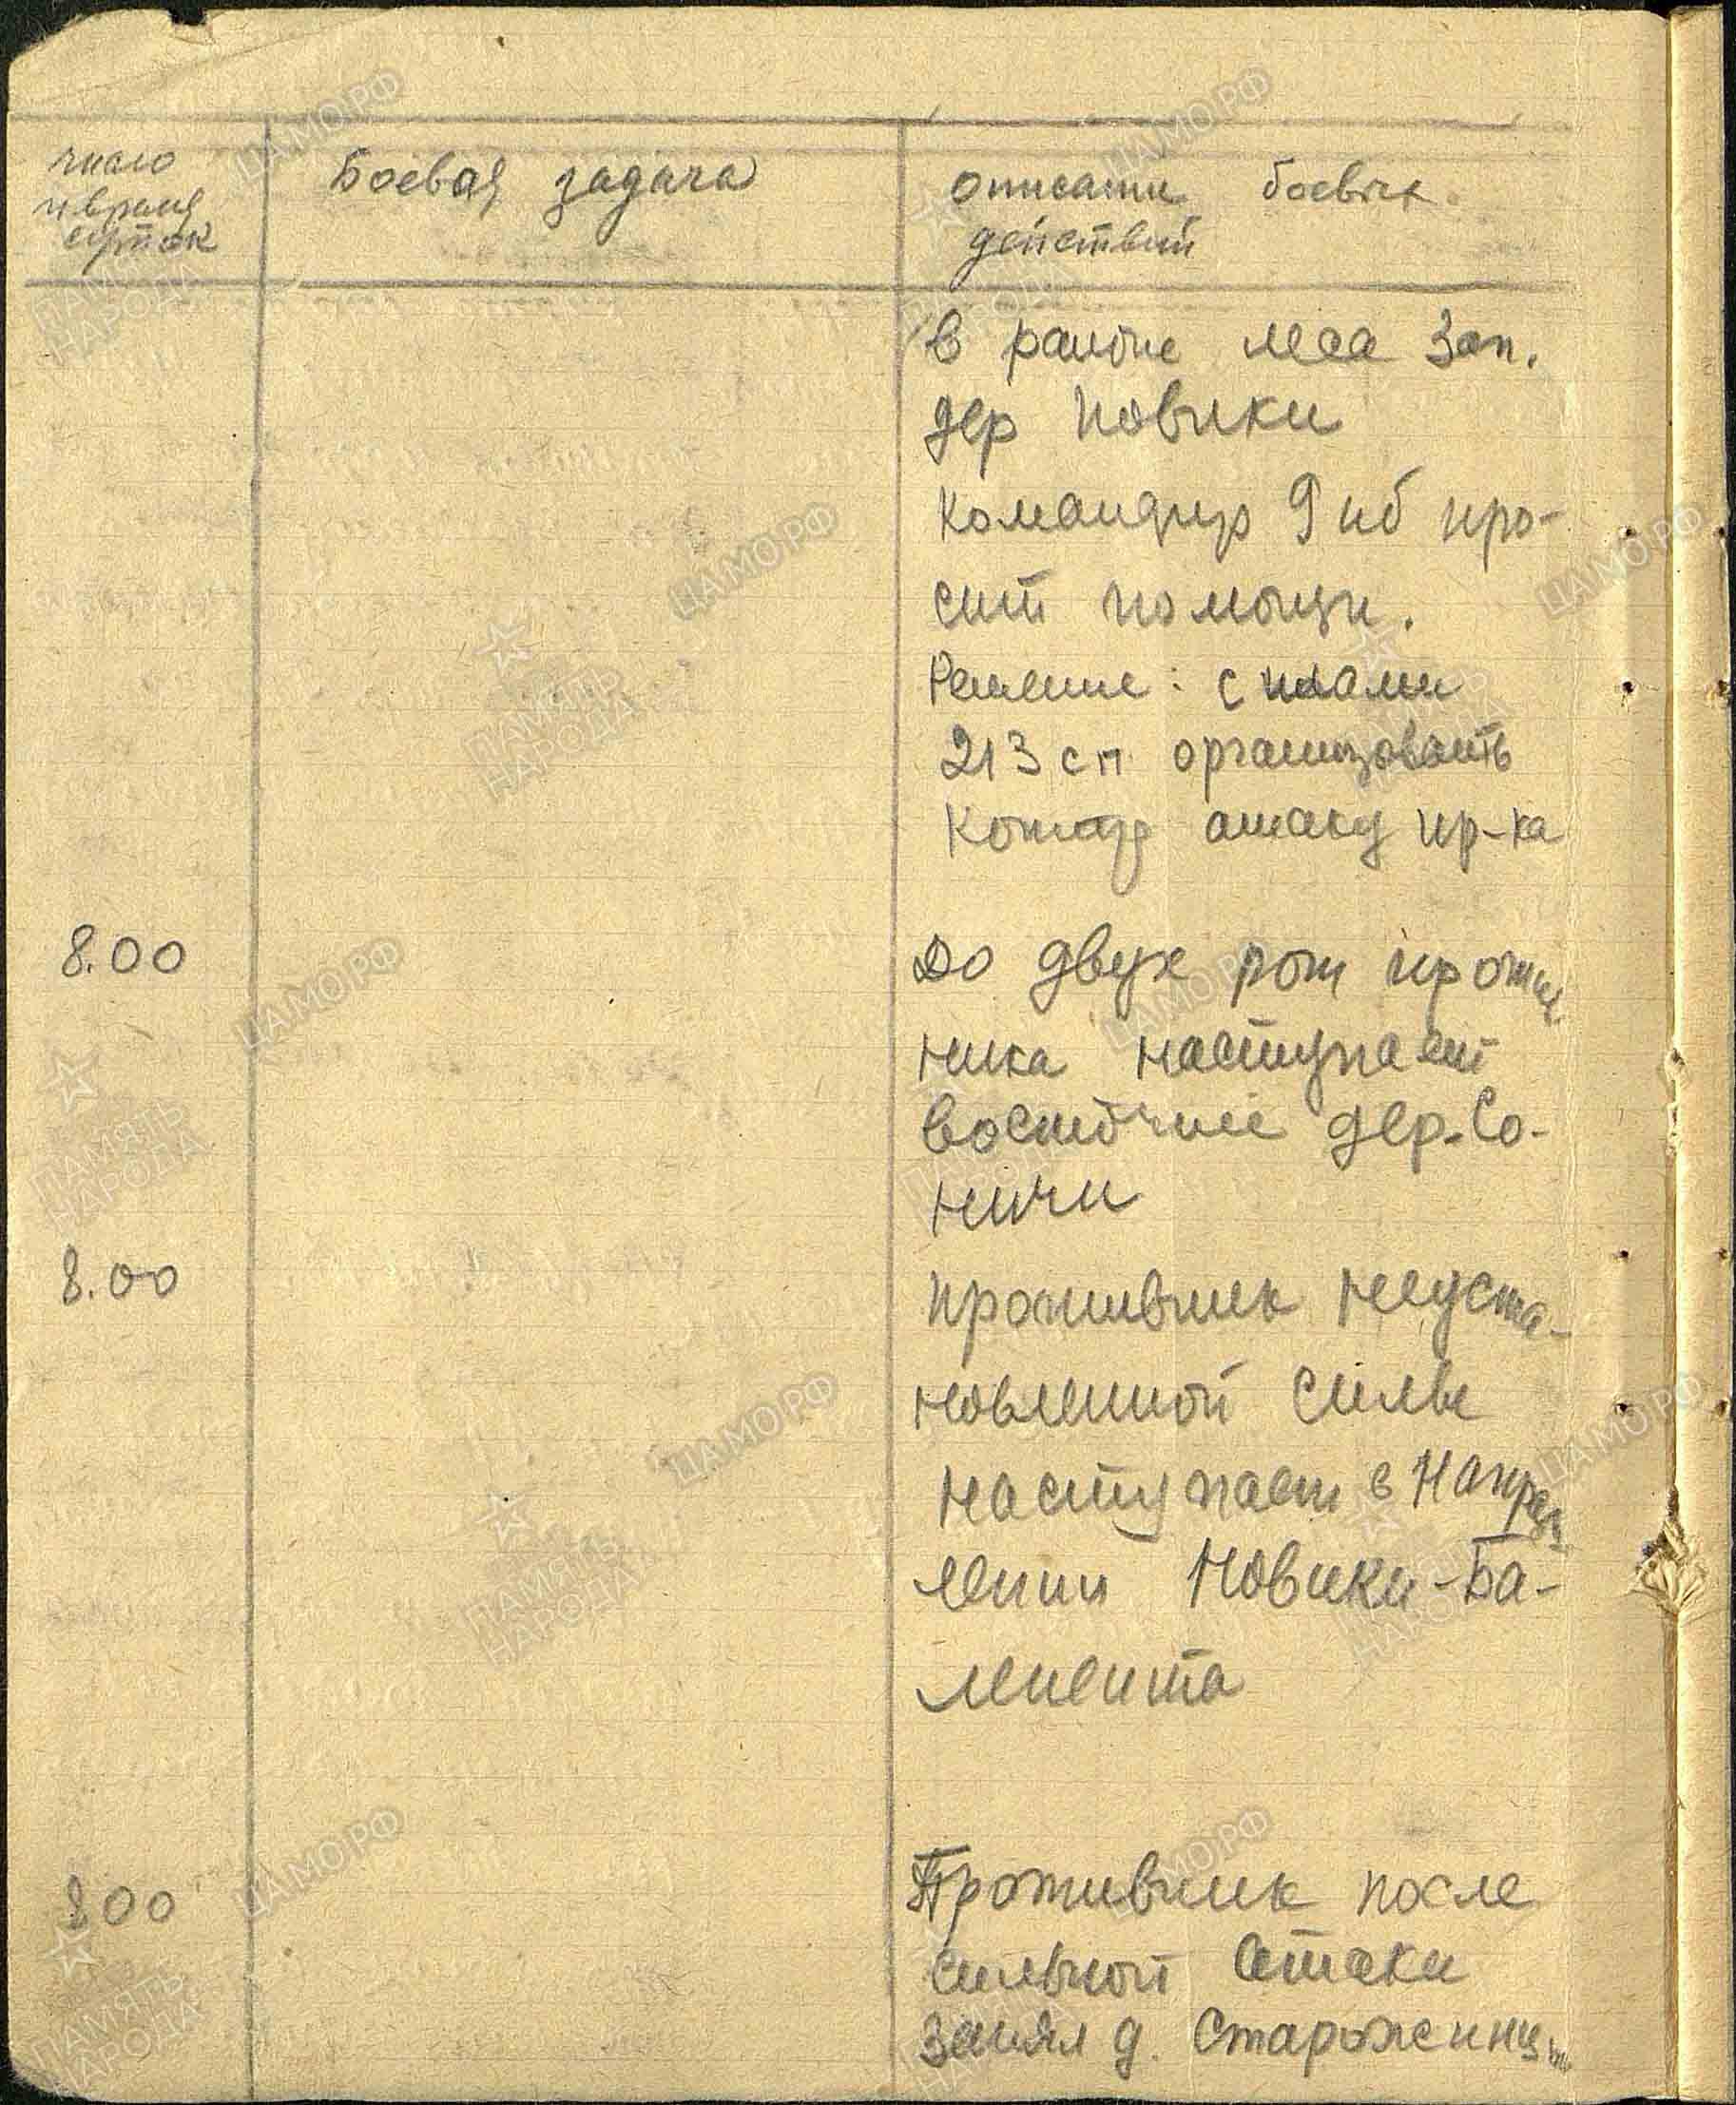 число
и время
суток
Боевая задача
описание боевых
действий
в районе леса зап.
дер Новики
Командир 9 иб про-
сит помощи.
Решение: силами
213 сп организовать
контр атаку пр-ка
8.00
До двух рот против
ника наступает
восточнее дер. Со-
ничи
8.00
противник неуста-
новленной силы
наступает в Направ
лении Новики-Ба-
8.00
Противник после
сильной атаки
занял д. Староженцы
ЦАМО.РФ
ПАМЯТЬ
НАРОДА